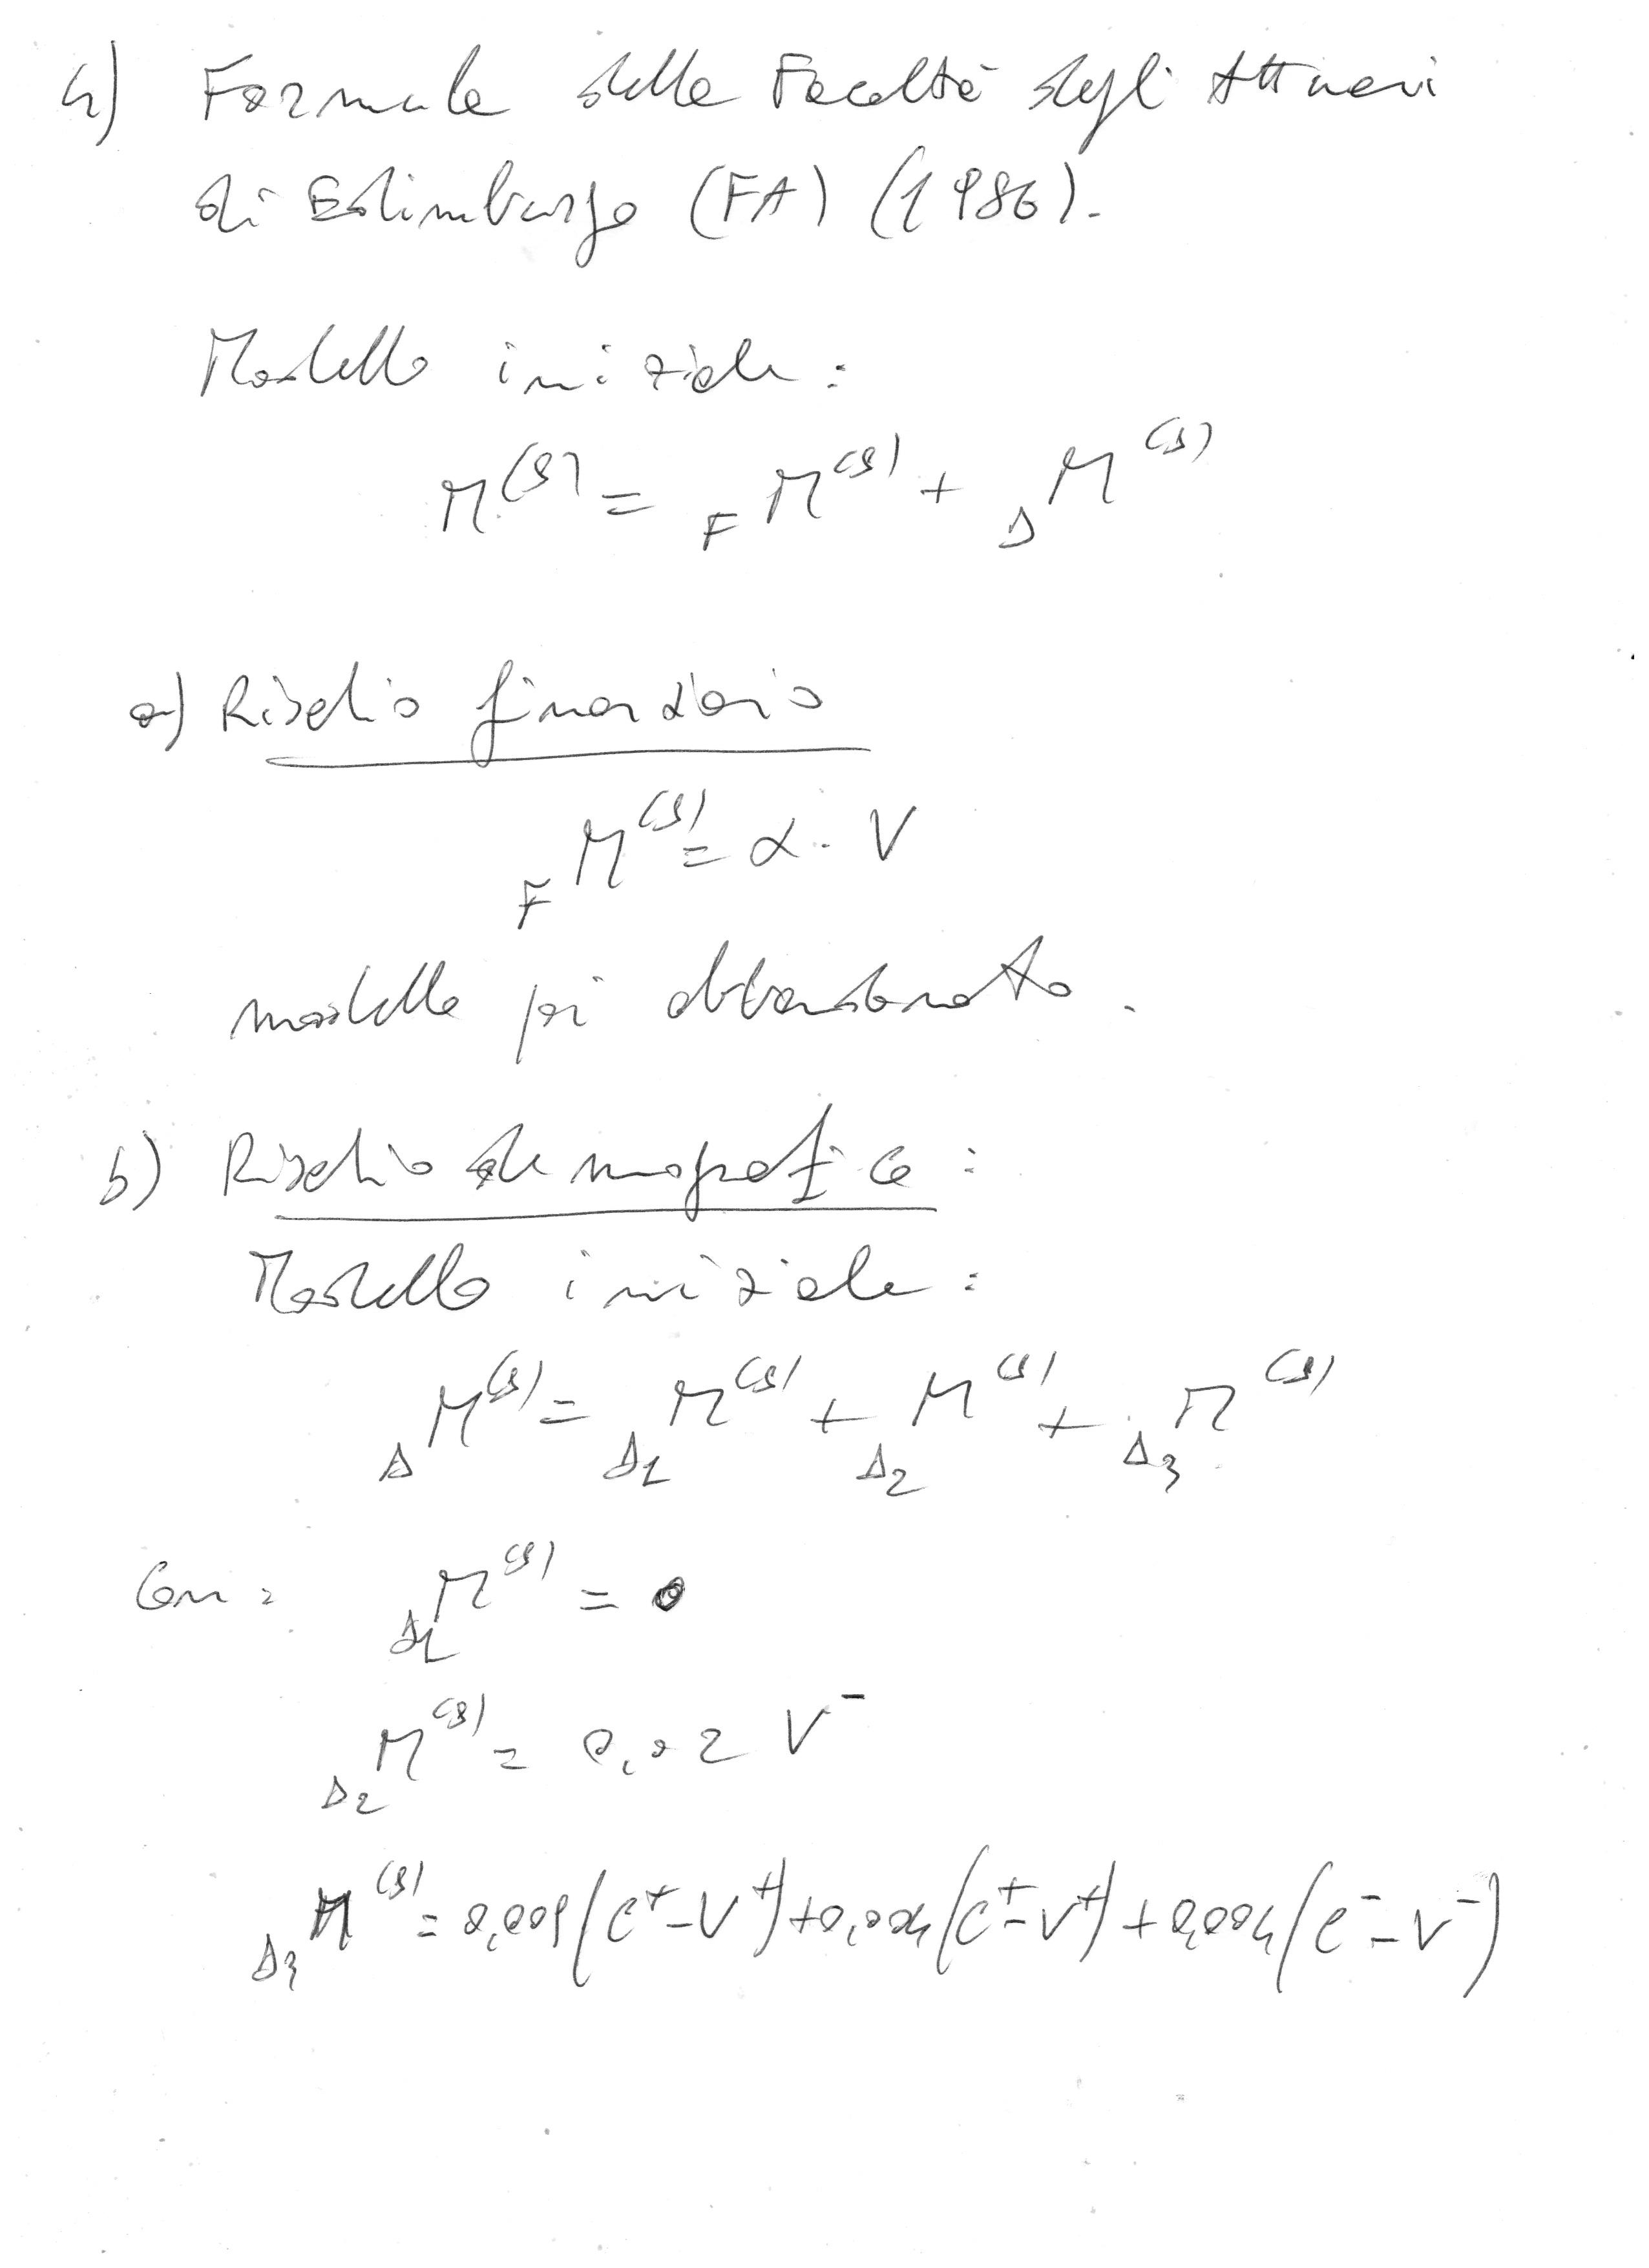 4) Formula della Facoltà degli Attuari
di Edimburgo (FA) (1986).
Modello iniziale:
M^(S) = _F M^(S) + _D M^(S)
a) Rischio finanziario
_F M^(S) = α · V
modello poi abbandonato.
b) Rischio demografico:
Modello iniziale:
_D M^(S) = _D1 M^(S) + _D2 M^(S) + _D3 M^(S)
Con: _D1 M^(S) = 0
_D2 M^(S) = 0,02 V^-
_D3 M^(S) = (C^+ - V^+) + (C^+ - V^+) + 0,004 (C^- - V^-)